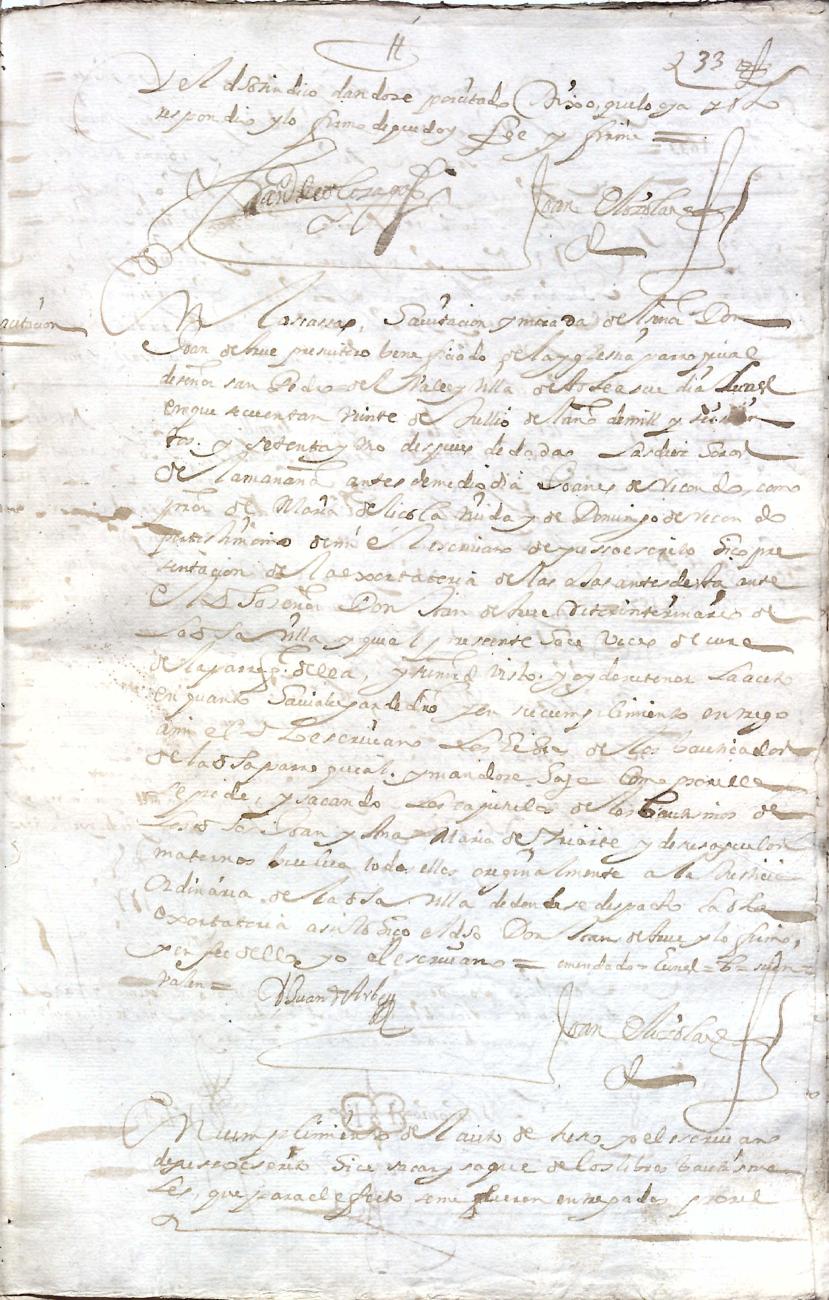 233
del dho sindico dandose por citado Dixo, que lo oya y esto
respondio y lo firmo de que doy fee y firme =
Joan Elizalde
citacion
En las cassas, havitacion y morada del señor Don
Joan de Arve presuitero beneficiado de la yglesia parroquial
de señor san Pedro del Valle y Villa de dia Lunes
en que se cuentan Veinte de Jullio del año de mill y seiscien
tos y setenta y uno despues de dadas Las diez horas
de la mañana antes de medio dia Joanes de Recondo, como
de Maria de Nicola viuda y de Domingo de Recondo
por testimonio de mi el escrivano de yusso escrito hiço pre
sentacion de la exortatoria de las ojas antes desta ante
el dho señor Don Joan de Arve Vicario interinario de
La dha Villa y que al presente haze Vices de cura
de la parroq. della, y su md Visto, y oydo su tenor La aceto
en quanto havia lugar de dro y en su cumplimiento entrego
a mi el dho escrivano Los libros de los bautizados
de la dha parroquial, y mandose saque como por ella
se pide, y sacando Los capitulos de los Bautismos de
Los dhos Joan y Ana Maria de Yriarte y de sus aguelos
maternos buelva todos ellos originalmente a la Justicia
Ordinaria de la dha Villa de donde se despacho La dha
exortatoria assi lo dixo el dho Don Joan de Arve y lo firmo,
y en fee dello yo el escrivano = emendado = Lunes = B =
valen =
D Juan de Arbe
Joan Elizalde
En cumplimiento del auto de suso yo el escrivano
de yusso escrito hice sacar y saque de los libros bautisma
les, que para el efecto, se me fueron entregados por el